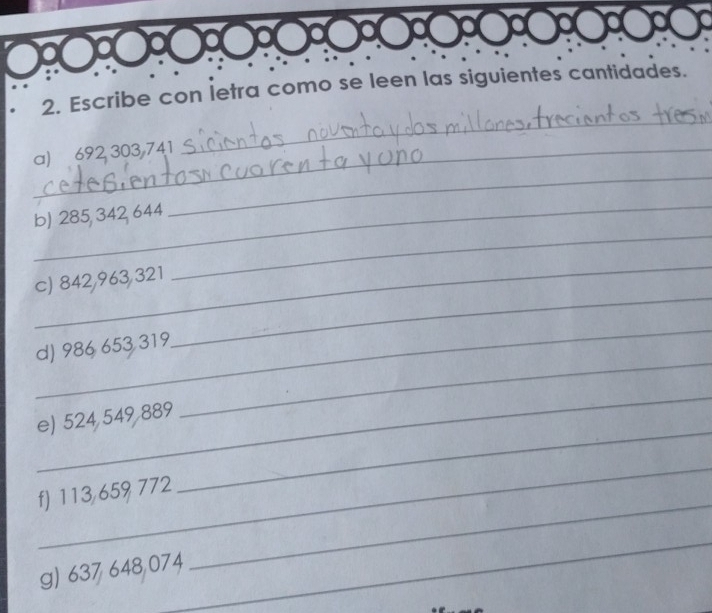 2. Escribe con letra como se leen las siguientes cantidades.
a) 692,303,741 sicientos noventa y dos millones, trecientos tres m
cetesientos cuarenta y uno
b) 285,342,644
c) 842,963,321
d) 986,653,319
e) 524,549,889
f) 113,659,772
g) 637,648,074